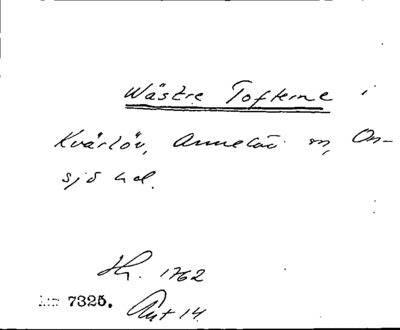 Wästre Tofterne i
Kvärlöv, Annelöv sn, On-
sjö hd.
Hr. 1762
7325. Akt 14